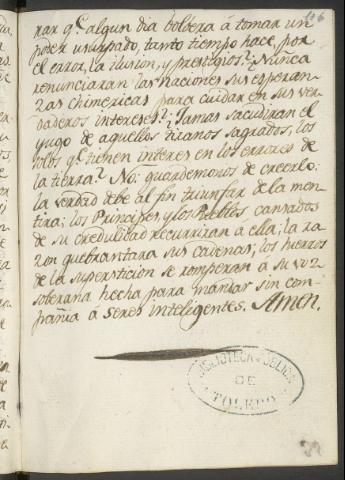 rar q.e algun dia bolbera á tomar un
poder usurpado, tanto tiempo hace, por
el error, la ilusion, y prestigios? ¿Nunca
renunciaran las naciones sus esperan-
zas chimericas para cuidar en sus ver-
daderos intereses? ¿Jamas sacudiran el
yugo de aquellos tiranos sagrados, los
solos q.e tienen interes en los errores de
la tierra? No: guardemonos de creerlo:
la verdad debe al fin triunfar de la men-
tira; los Principes, y los Pueblos cansados
de su credulidad recurriran á ella; la ra-
zon quebrantara sus cadenas; los hierros
de la supersticion se romperan á su voz
soberana hecha para mandar sin com-
pañia á seres inteligentes. Amen.
BIBLIOTECA PUBLICA
DE
TOLEDO